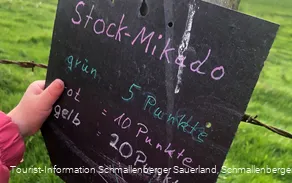 Stock-Mikado
grün 5 Punkte
ot = 10 Punkte
gelb = 20 P
Tourist-Information Schmallenberger Sauerland, Schmallenberger